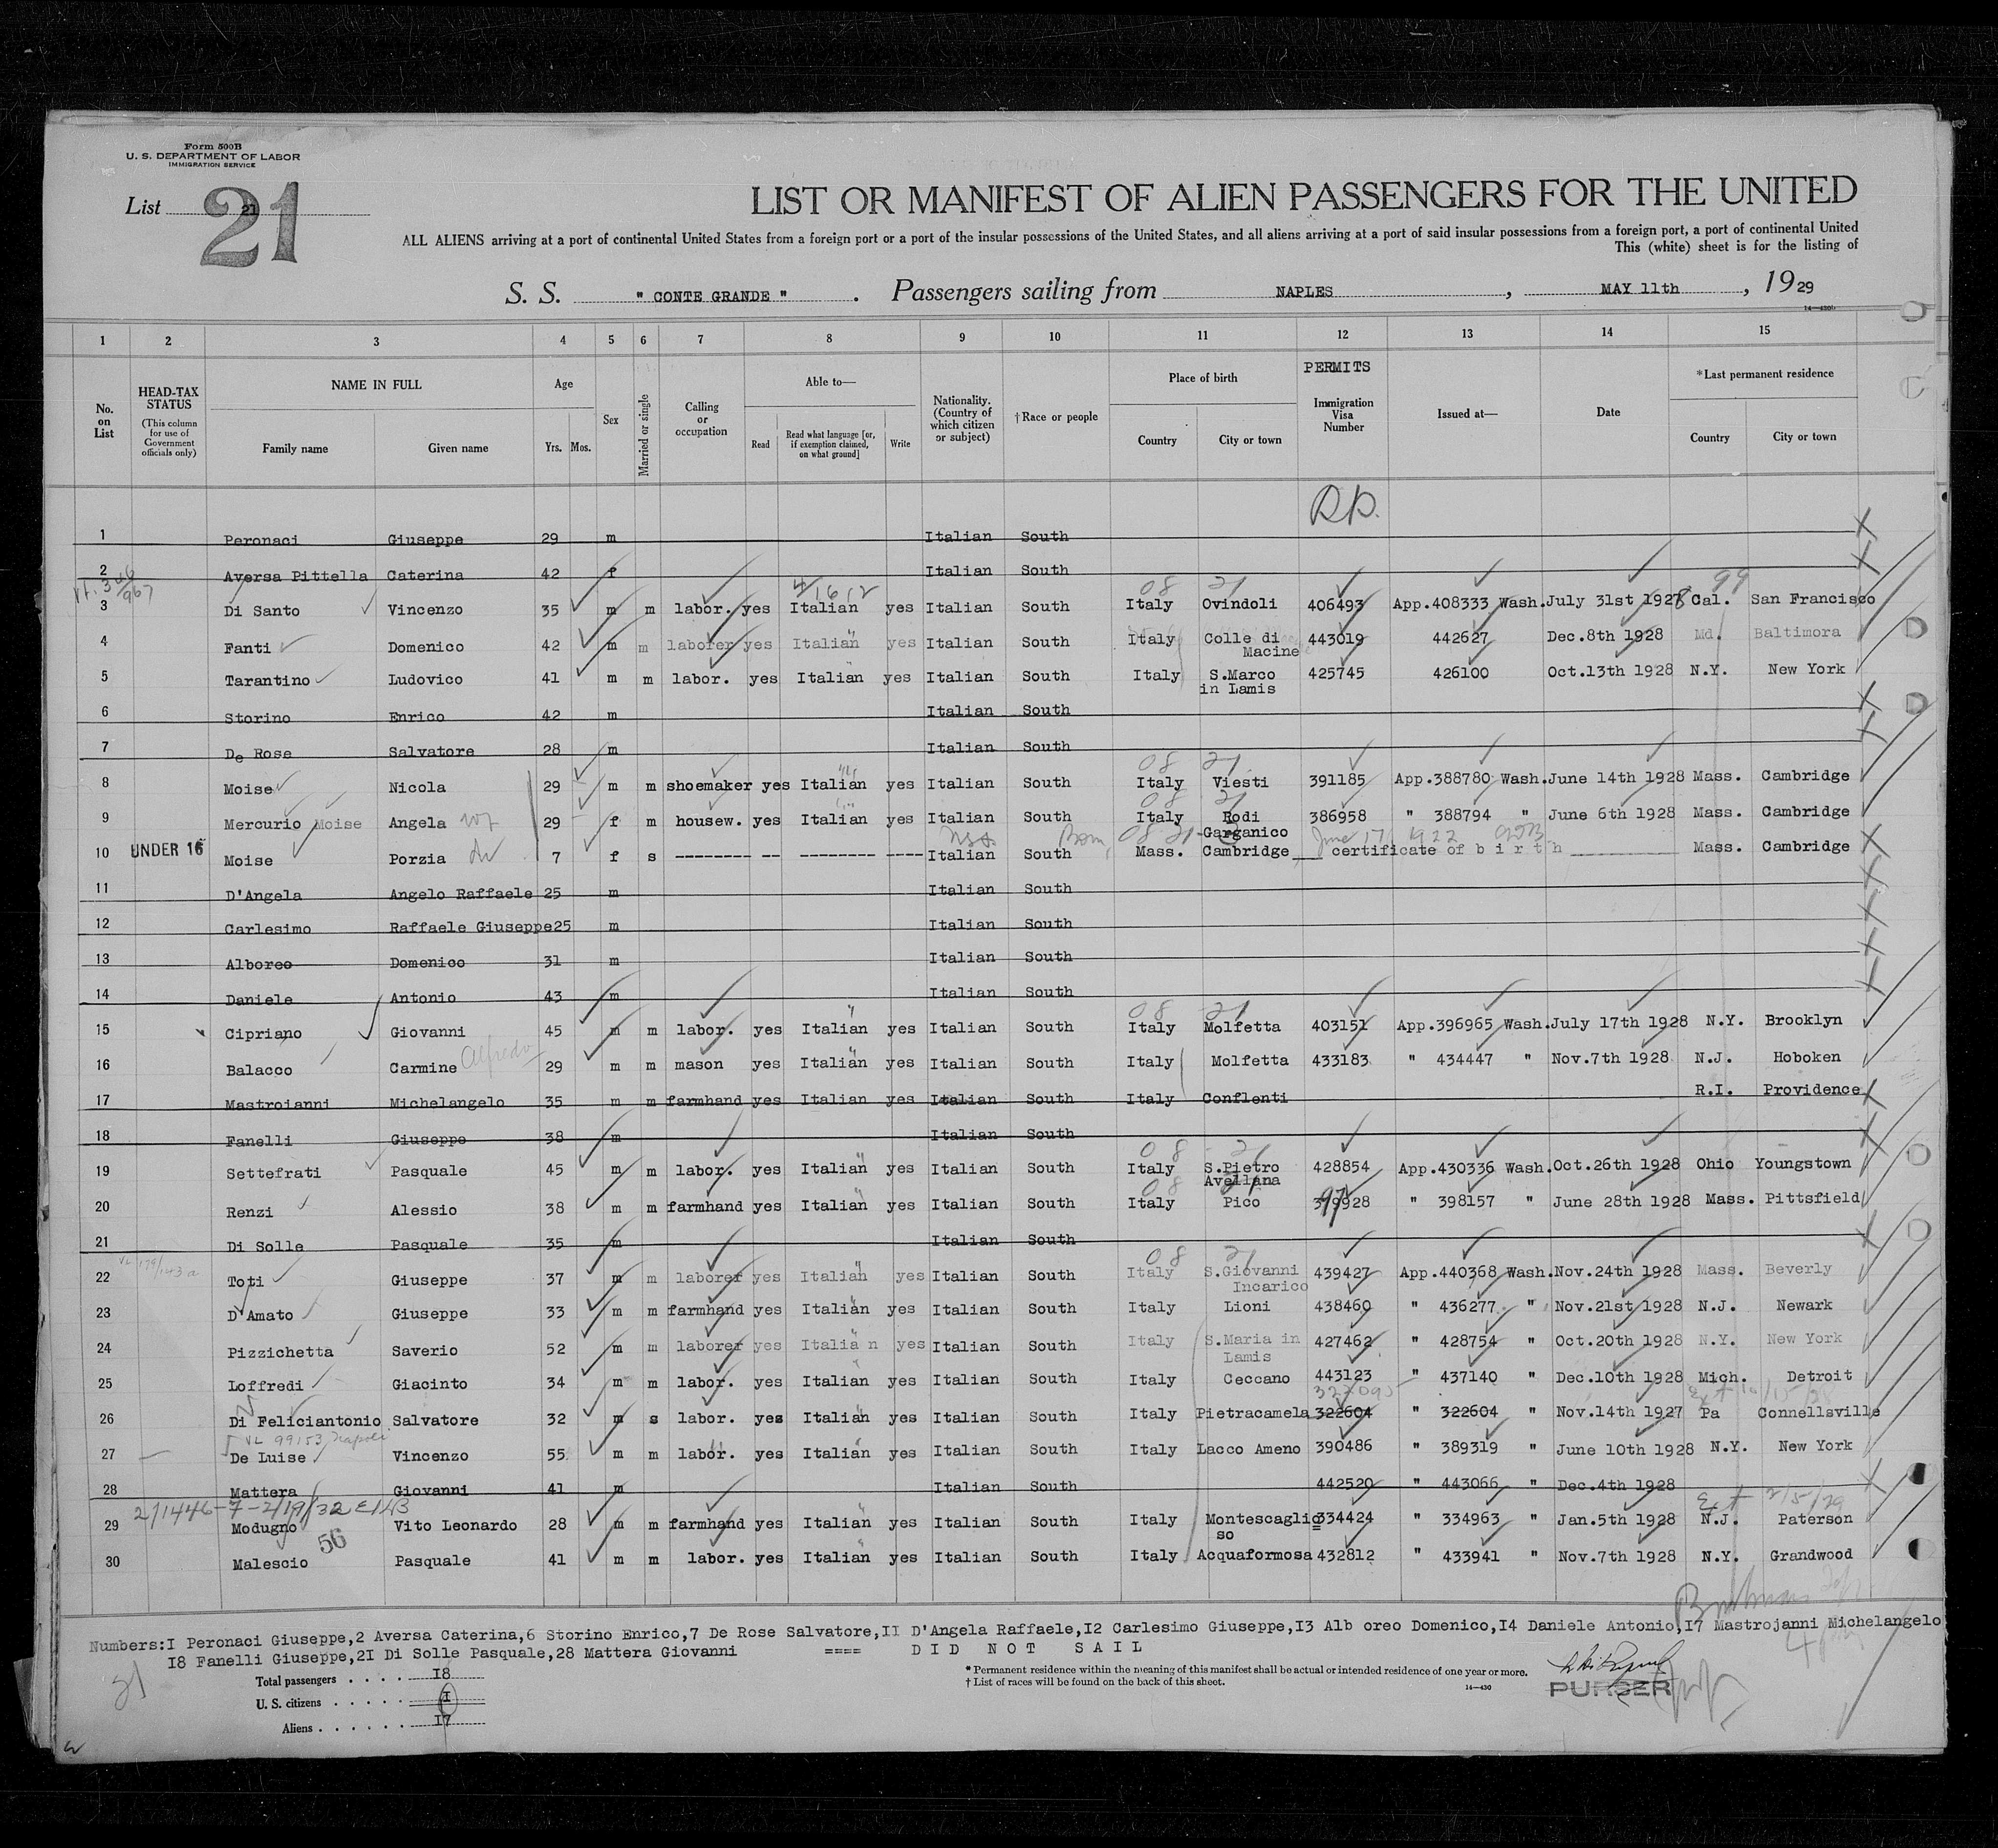 Form 500B
U. S. DEPARTMENT OF LABOR
IMMIGRATION SERVICE
List 21
21
LIST OR MANIFEST OF ALIEN PASSENGERS FOR THE UNITED
ALL ALIENS arriving at a port of continental United States from a foreign port or a port of the insular possessions of the United States, and all aliens arriving at a port of said insular possessions from a foreign port, a port of continental United
This (white) sheet is for the listing of
S. S. " CONTE GRANDE " . Passengers sailing from NAPLES , MAY 11th , 1929
14—430
1 2 3 4 5 6 7 8 9 10 11 12 13 14 15
No. on List
HEAD-TAX STATUS (This column for use of Government officials only)
NAME IN FULL Family name Given name
Age Yrs. Mos.
Sex
Married or single
Calling or occupation
Able to— Read Read what language [or, if exemption claimed, on what ground] Write
Nationality. (Country of which citizen or subject)
†Race or people
Place of birth Country City or town
PERMITS Immigration Visa Number
Issued at—
Date
*Last permanent residence Country City or town
1 Peronaci Giuseppe 29 m Italian South
2 Aversa Pittella Caterina 42 f Italian South
3 Di Santo Vincenzo 35 m m labor. yes Italian yes Italian South Italy Ovindoli 406493 App.408333 Wash. July 31st 1928 Cal. San Francisco
4 Fanti Domenico 42 m m laborer yes Italian yes Italian South Italy Colle di Macine 443019 442627 Dec.8th 1928 Md. Baltimora
5 Tarantino Ludovico 41 m m labor. yes Italian yes Italian South Italy S.Marco in Lamis 425745 426100 Oct.13th 1928 N.Y. New York
6 Storino Enrico 42 m Italian South
7 De Rose Salvatore 28 m Italian South
08 21
8 Moise Nicola 29 m m shoemaker yes Italian yes Italian South Italy Viesti 391185 App.388780 Wash. June 14th 1928 Mass. Cambridge
9 Mercurio Moise Angela wf 29 f m housew. yes Italian yes Italian South Italy Rodi Garganico 386958 " 388794 " June 6th 1928 Mass. Cambridge
June 17/1922
10 UNDER 16 Moise Porzia 7 f s -------- -- -------- ---- Italian South Mass. Cambridge certificate of b i r t h Mass. Cambridge
11 D'Angela Angelo Raffaele 25 m Italian South
12 Carlesimo Raffaele Giuseppe 25 m Italian South
13 Alboreo Domenico 31 m Italian South
14 Daniele Antonio 43 m Italian South
08 21
15 Cipriano Giovanni 45 m m labor. yes Italian yes Italian South Italy Molfetta 403151 App.396965 Wash. July 17th 1928 N.Y. Brooklyn
16 Balacco Carmine Alfredo 29 m m mason yes Italian yes Italian South Italy Molfetta 433183 " 434447 " Nov.7th 1928 N.J. Hoboken
17 Mastroianni Michelangelo 35 m m farmhand yes Italian yes Italian South Italy Conflenti R.I. Providence
18 Fanelli Giuseppe 38 m Italian South
08 21
19 Settefrati Pasquale 45 m m labor. yes Italian yes Italian South Italy S.Pietro Avellana 428854 App.430336 Wash. Oct.26th 1928 Ohio Youngstown
20 Renzi Alessio 38 m m farmhand yes Italian yes Italian South Italy Pico 397928 " 398157 " June 28th 1928 Mass. Pittsfield
21 Di Solle Pasquale 35 m Italian South
08 21
22 Toti Giuseppe 37 m m laborer yes Italian yes Italian South Italy S.Giovanni Incarico 439427 App.440368 Wash. Nov.24th 1928 Mass. Beverly
23 D'Amato Giuseppe 33 m m farmhand yes Italian yes Italian South Italy Lioni 438460 " 436277 " Nov.21st 1928 N.J. Newark
24 Pizzichetta Saverio 52 m m laborer yes Italia n yes Italian South Italy S.Maria in Lamis 427462 " 428754 " Oct.20th 1928 N.Y. New York
25 Loffredi Giacinto 34 m m labor. yes Italian yes Italian South Italy Ceccano 443123 " 437140 " Dec.10th 1928 Mich. Detroit
26 Di Feliciantonio Salvatore 32 m s labor. yes Italian yes Italian South Italy Pietracamela 322604 " 322604 " Nov.14th 1927 Pa Connellsville
VL 99153 Napoli
27 De Luise Vincenzo 55 m m labor. yes Italian yes Italian South Italy Lacco Ameno 390486 " 389319 " June 10th 1928 N.Y. New York
28 Mattera Giovanni 41 m Italian South 442520 " 443066 " Dec.4th 1928
29 Modugno Vito Leonardo 28 m m farmhand yes Italian yes Italian South Italy Montescaglioso 334424 " 334963 " Jan.5th 1928 N.J. Paterson
56
30 Malescio Pasquale 41 m m labor. yes Italian yes Italian South Italy Acquaformosa 432812 " 433941 " Nov.7th 1928 N.Y. Grandwood
Numbers:I Peronaci Giuseppe,2 Aversa Caterina,6 Storino Enrico,7 De Rose Salvatore,II D'Angela Raffaele,I2 Carlesimo Giuseppe,I3 Alb oreo Domenico,I4 Daniele Antonio,I7 Mastrojanni Michelangelo
I8 Fanelli Giuseppe,2I Di Solle Pasquale,28 Mattera Giovanni ==== D I D N O T S A I L
Total passengers . . . . I8
U. S. citizens . . . . . I
Aliens . . . . . . I7
* Permanent residence within the meaning of this manifest shall be actual or intended residence of one year or more.
† List of races will be found on the back of this sheet.
14—430
PURSER